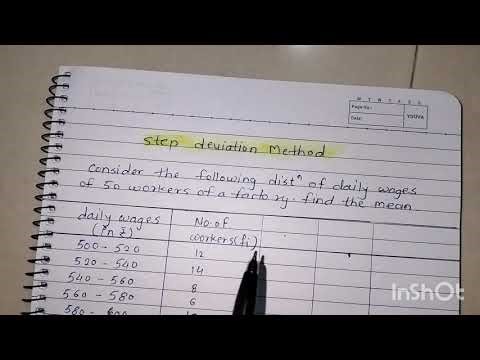 M T W T F S S
Page No.:
Date:
YOUVA
Step deviation Method
Consider the following distⁿ of daily wages
of 50 workers of a factory. find the mean
daily wages No. of
(In ₹) workers(fi)
500 - 520 12
520 - 540 14
540 - 560 8
560 - 580 6
580 - 600
InShOt